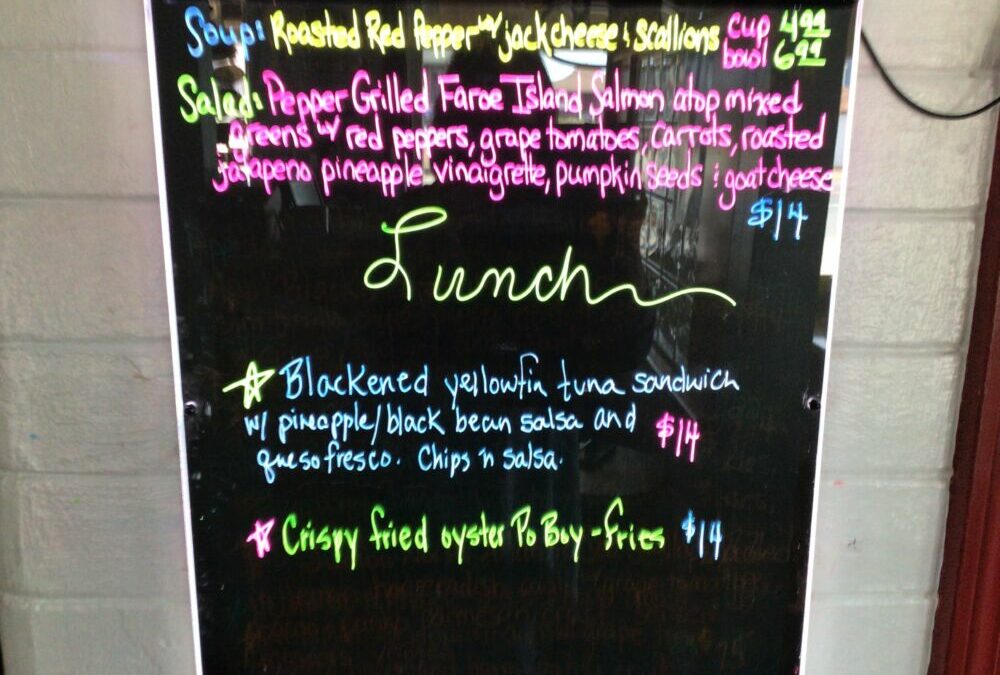 Soup: Roasted Red Pepper w/ jack cheese & scallions cup 4.99
bowl 6.99
Salad: Pepper Grilled Faroe Island Salmon atop mixed
greens w/ red peppers, grape tomatoes, carrots, roasted
jalapeno pineapple vinaigrette, pumpkin seeds & goat cheese
$14
Lunch
☆ Blackened yellowfin tuna sandwich
w/ pineapple/black bean salsa and $14
queso fresco. Chips n salsa.
☆ Crispy fried oyster Po Boy - fries $14